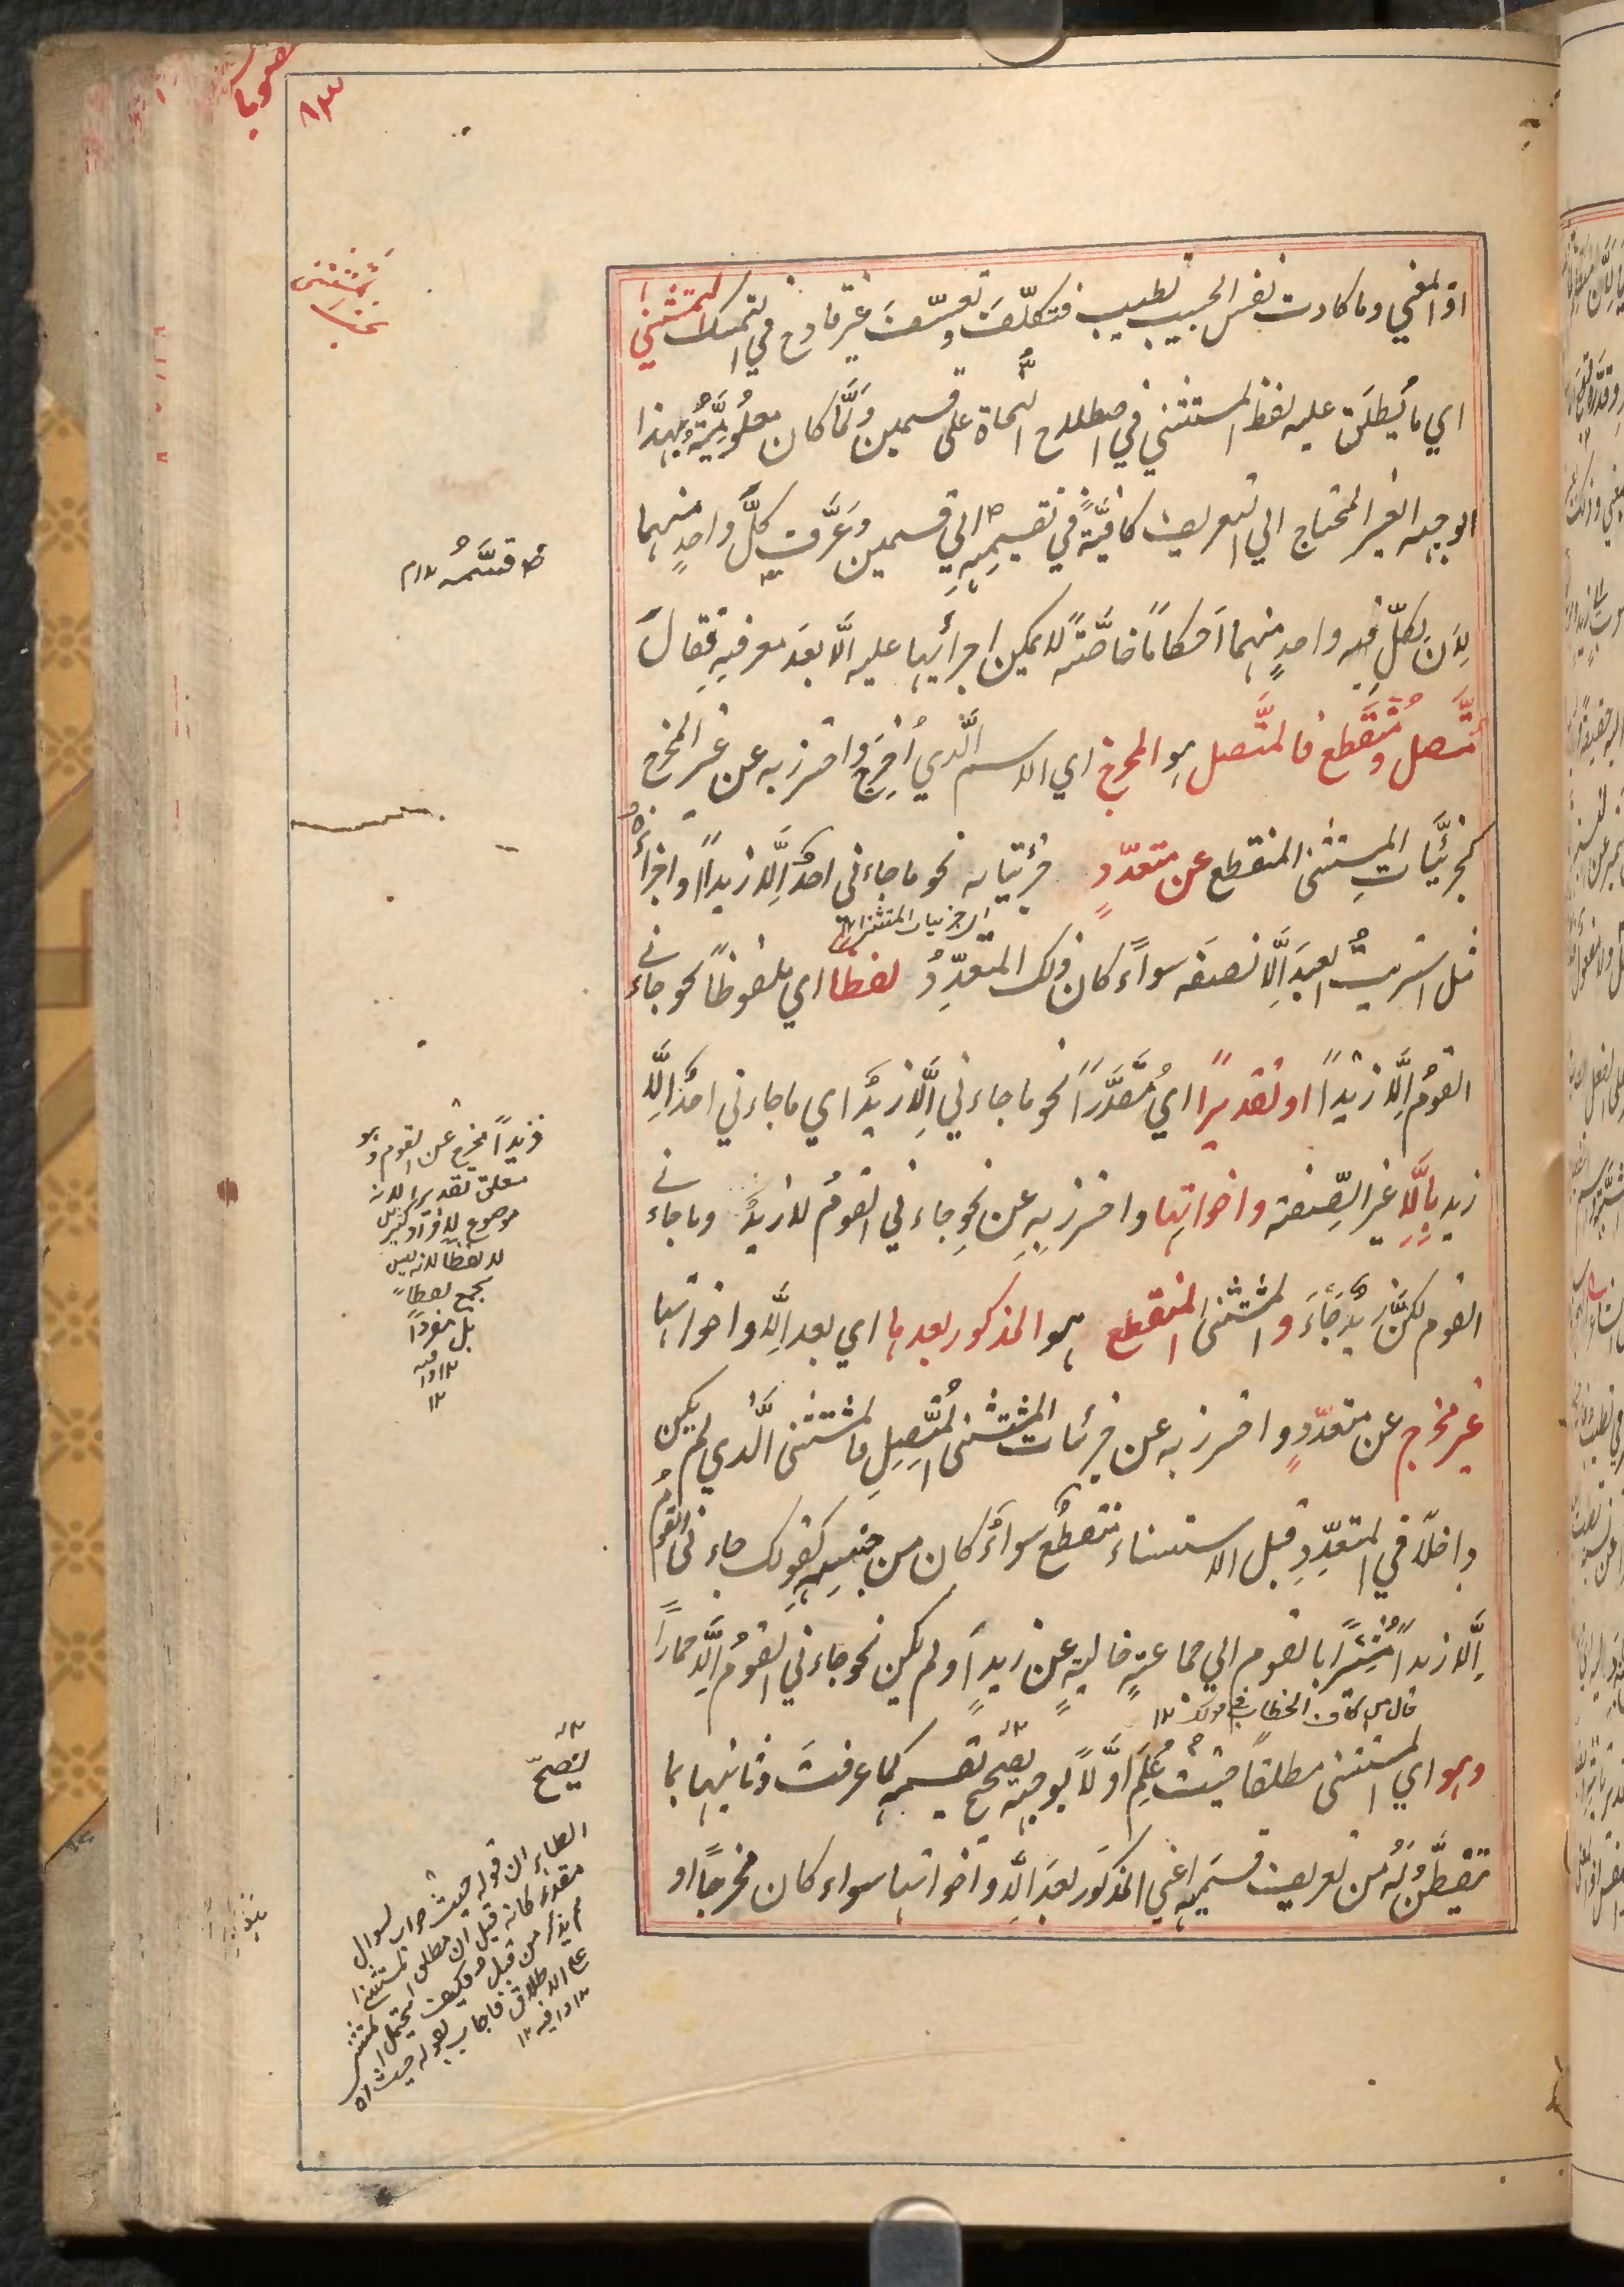 اذ المعني وما كادت نفس الحبيب تطيب فتكلّفَ وتعسّفَ غير قادح في التمسك المستثنى
اي ما يُطلَق عليه لفظ المستثنى في اصطلاح النُّحاة على قسمين ولَمَّا كان معلُوميَّتُهُ بهذا
الوجه الغير المحتاج الي التعريف كافيَّةً في تقسيمِهِ الي قسمين وعَرَّف كلَّ واحدٍ منهما
لِاَنَّ لكلّ واحدٍ منهما اَحكامًا خاصَّةً لا يمكن اجرائها عليه الّا بعدَ معرفتِهِ فقالَ
متَّصل ومُنْقطع فالمتَّصل هو المخرج اي الاسم الَّذي اُخرِجَ واحترز به عن غير المخرج
كجزئيَّاتِ المستثنى المنقطع عن متعدّدٍ جزئياته نحو ما جاءني احدٌ اِلَّا زيدًا او اجزاءُهُ
اي جزئيات المستثنى
مثل اشتريتُ العبدَ اِلَّا نصفَه سواءً كان ذلك المتعدّدُ لفظًا اي ملفوظًا نحو جاءني
القومُ اِلَّا زيدًا او تقديرًا اي مُقدَّرًا نحو ما جاءني اِلَّا زيدٌ اي ما جاءني احدٌ اِلَّا
زيد بِاِلَّا غير الصّفة واخواتِها واحترز بِهِ عن نحوِ جاءني القومُ لا زيدٌ وما جاءني
القوم لكنَّ زيدٌ جَاءَ والمستثنى المنقطع هو المذكور بعدها اي بعد اِلَّا واخواتها
غير مخرج عن متعدّدٍ واحترز به عن جزئيات المستثنى المُتَّصِلِ فالمستثنى الَّذي لم يكن
داخلًا في المتعدّدِ قبل الاستثناء منقطعٌ سواءٌ كان من جنسِهِ كقولك جاءني القومُ
اِلَّا زيدًا مُشِيْرًا بالقوم الي جماعةٍ خاليةٍ عن زيدٍ او لم يكن نحو جاءني القومُ اِلَّا حمارًا
وهو اي المستثنى مطلقًا حيثُ عُلِمَ اوّلًا بوجهٍ يصحّح تقسيمه كما عرفتَ وثانيها بما
تفطَّنُ لهُ من تعريف قسمَيهِ اعني المذكور بعدَ اِلَّا واخواتها سواء كان مخرجًا او
قسَّمُه ١٢ م
فزيدًا مخرج عن القوم وهو
متعلق تقديرا لانه
موضوع لافراد كثير
لا لفظا لانه ليس
بجمع لفظًا
بل مفردًا
١٢ وافيه
١٢
يصحّ
الظاهر ان قوله حيث جواب لسوال
مقدر كانه قيل ان مطلق المستثنى
لم يذكر من قبل فكيف
علي الاطلاق فاجاب بقوله حيث اه
١٢ وافيه ١٢